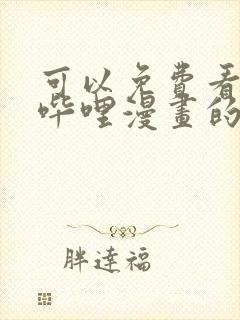 可以免費看
哔哩漫畫的
胖達福